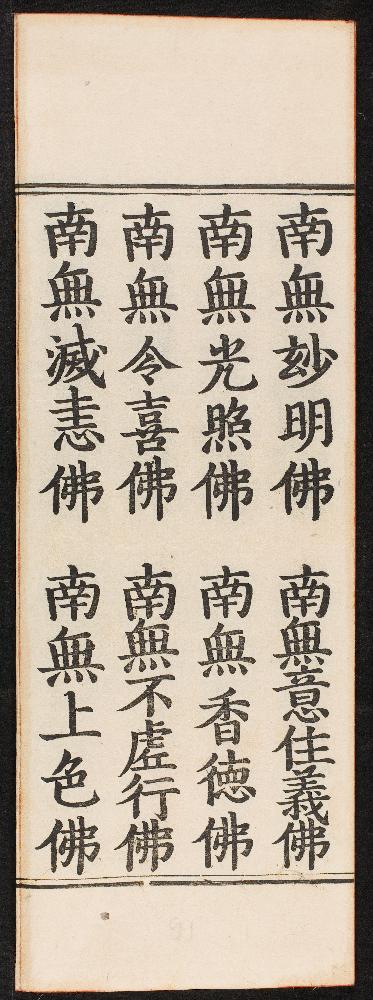 南無玅明佛　南無意住義佛
南無光照佛　南無香徳佛
南無令喜佛　南無不虛行佛
南無滅恚佛　南無上色佛